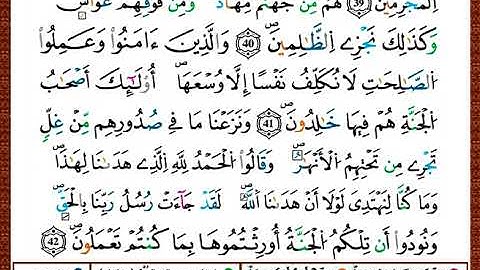 اَلْمُجْرِمِينَ 39 لَهُم مِّن جَهَنَّمَ مِهَادٌ وَمِن فَوْقِهِمْ غَوَاشٍ
وَكَذَٰلِكَ نَجْزِے اِلظَّٰلِمِينَ 40 وَالذِينَ ءَامَنُوا وَعَمِلُوا
اُلصَّٰلِحَٰتِ لَا نُكَلِّفُ نَفْسًا اِلَّا وُسْعَهَا أُوْلَٰئِكَ أَصْحَٰبُ
اُلْجَنَّةِ هُمْ فِيهَا خَٰلِدُونَ 41 وَنَزَعْنَا مَا فِے صُدُورِهِم مِّنْ غِلٍّ
تَجْرِے مِن تَحْتِهِمُ اُلْأَنْهَٰرُ وَقَالُوا اُلْحَمْدُ لِلهِ اِلذِے هَدَىٰنَا لِهَٰذَا
وَمَا كُنَّا لِنَهْتَدِىَ لَوْلَا أَنْ هَدَىٰنَا اَللَّهُ لَقَدْ جَآءَتْ رُسُلُ رَبِّنَا بِالْحَقِّ
وَنُودُوا أَن تِلْكُمُ اُلْجَنَّةُ أُورِثْتُمُوهَا بِمَا كُنتُمْ تَعْمَلُونَ 42